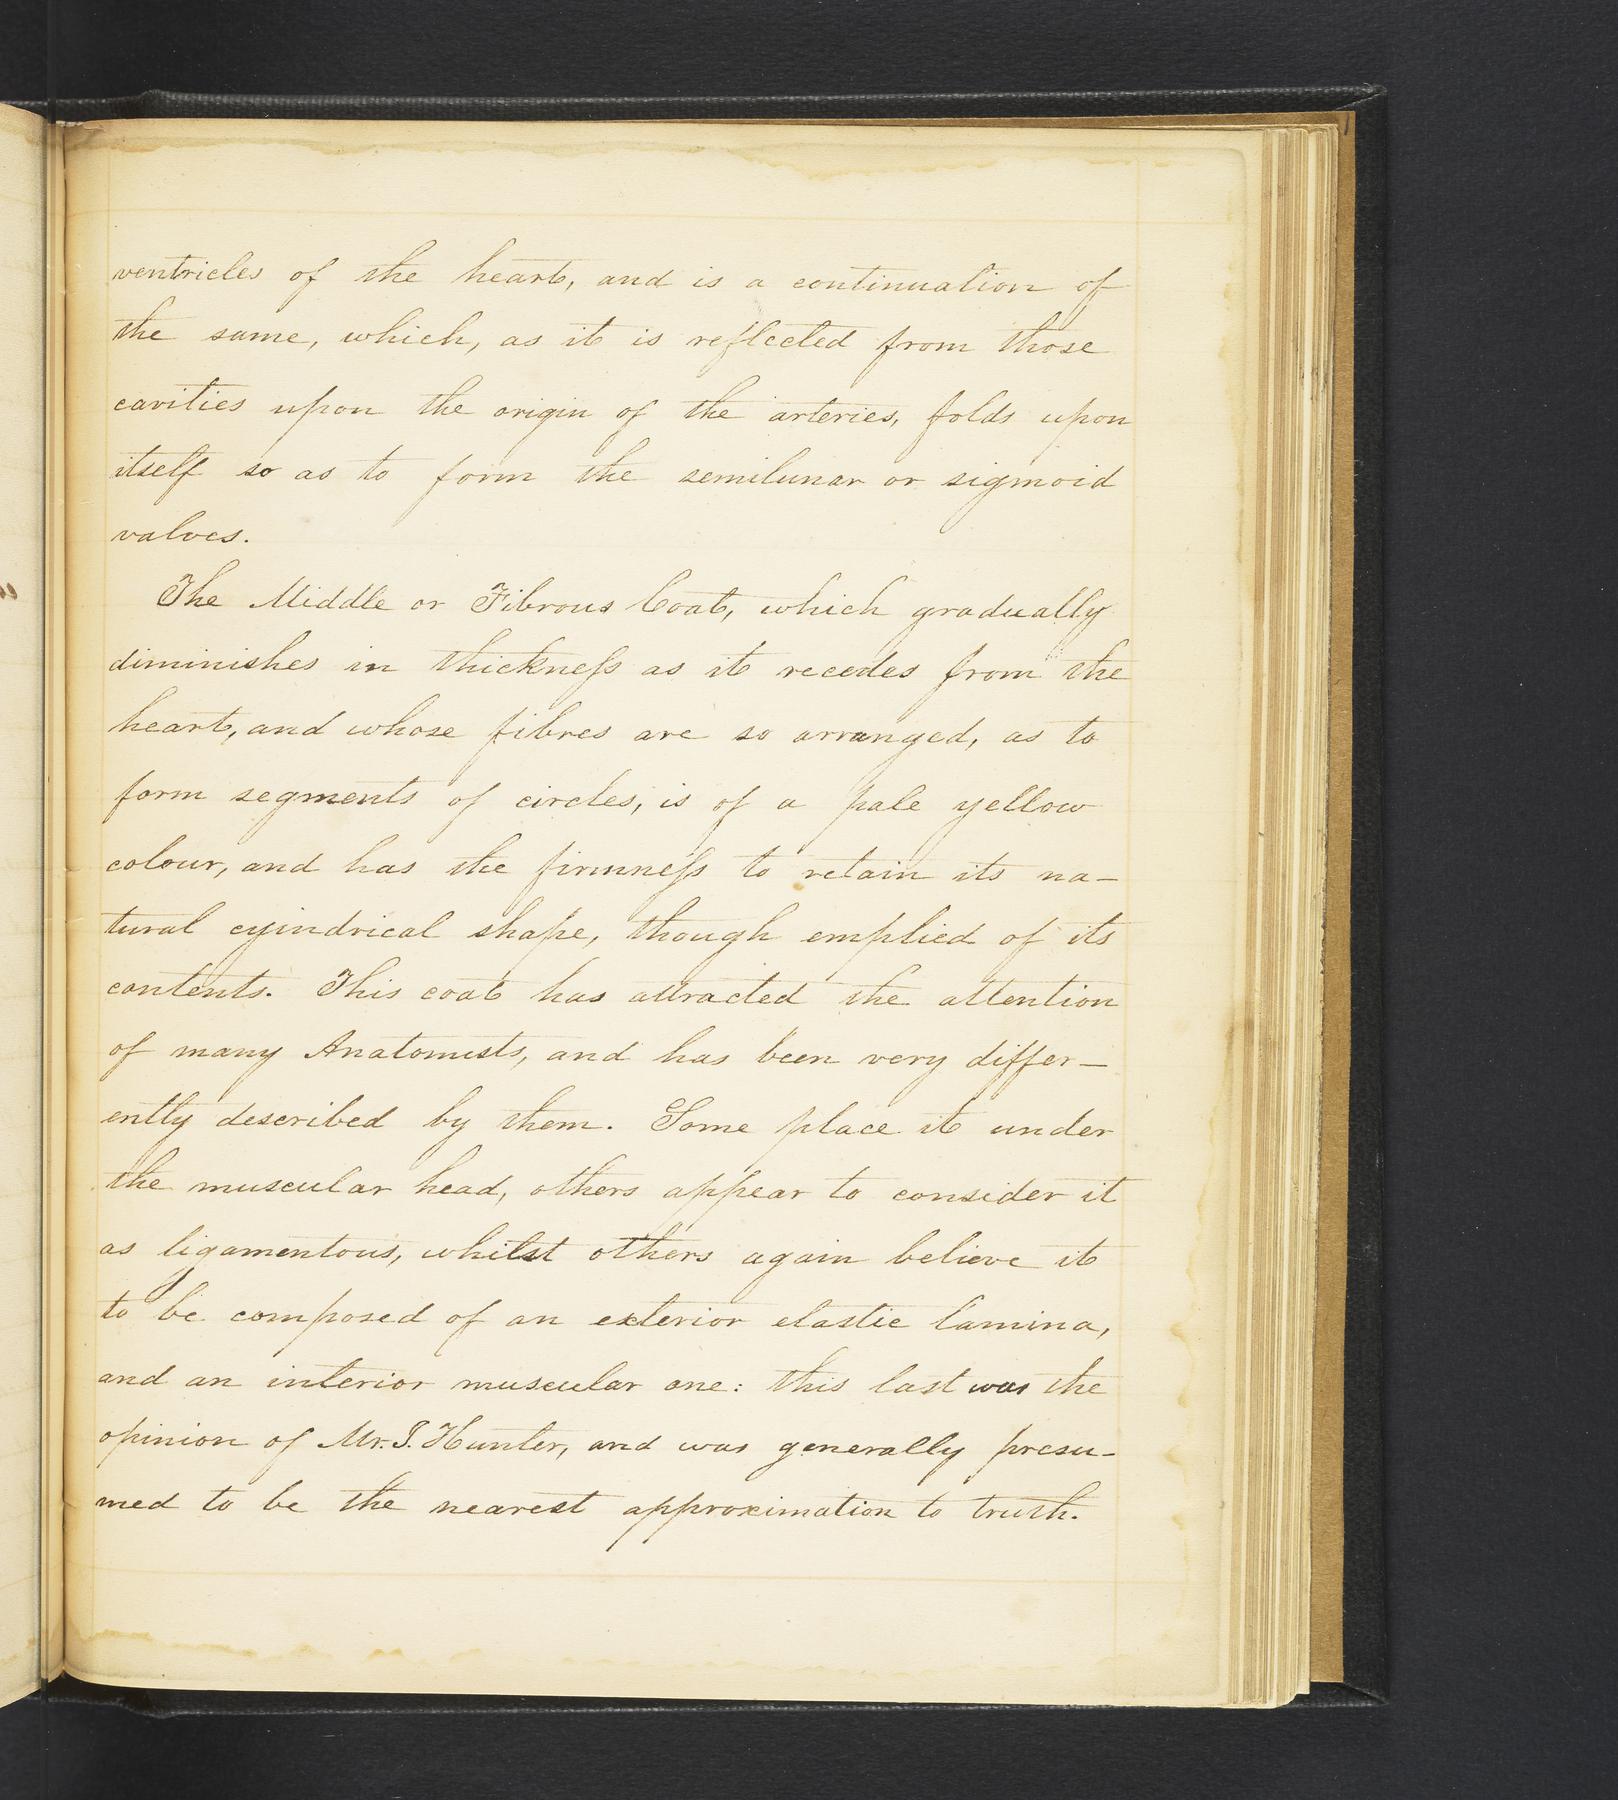 ventricles of the heart, and is a continuation of
the same, which, as it is reflected from those
cavities upon the origin of the arteries, folds upon
itself so as to form the semilunar or sigmoid
valves.
The Middle or Fibrous Coat, which gradually
diminishes in thickneſs as it recedes from the
heart, and whose fibres are so arranged, as to
form segments of circles, is of a pale yellow
colour, and has the firmneſs to retain its na-
tural cyindrical shape, though emptied of its
contents. This coat has attracted the attention
of many Anatomists, and has been very differ-
ently described by them. Some place it under
the muscular head, others appear to consider it
as ligamentous, whilst others again believe it
to be composed of an exterior elastic lamina,
and an interior muscular one: this last was the
opinion of Mr. J. Hunter, and was generally presu-
med to be the nearest approximation to truth.